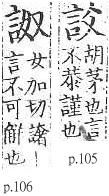 訤
胡茅也言
不恭謹也
p.105
詉
女加切譇
言不可解也
p.106